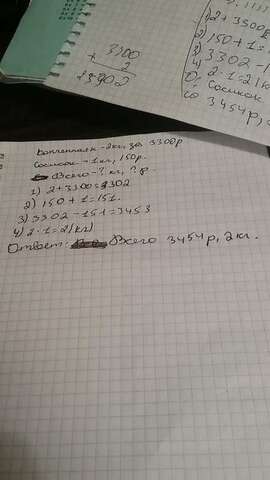 3300
+ 2
3302
1) 2+3300
2) 150+1=
3) 3302-1
4) 2·1=2(кг
Сосисок
3454р,
Копченная -2кг, за 3300р
Сосисок -1кг, 150р.
Всего -? кг, ? р.
1) 2+3300=3302
2) 150+1=151.
3) 3302-151=3453
4) 2·1=2(кг)
Ответ: Всего 3454р, 2кг.